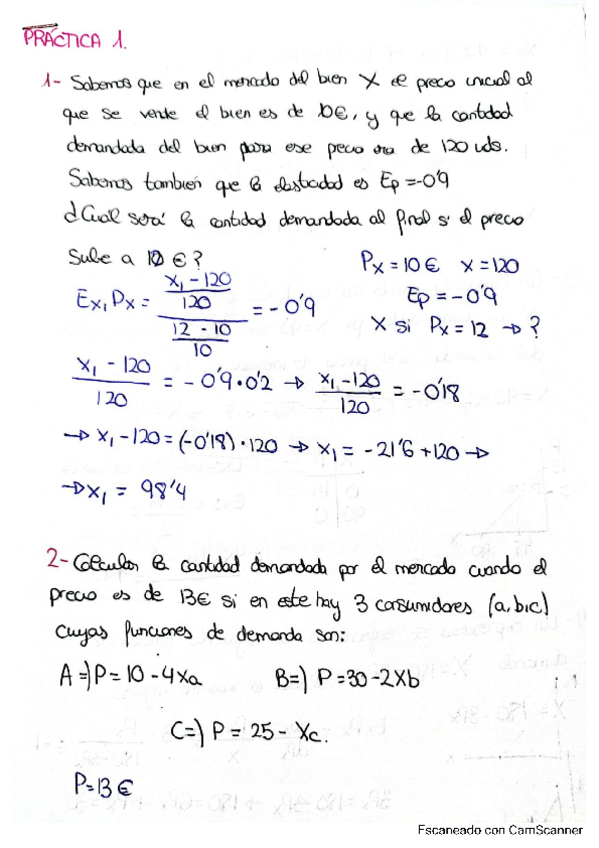 PRÁCTICA 1.
1- Sabemos que en el mercado del bien X el precio inicial al
que se vende el bien es de 10€, y que la cantidad
demandada del bien para ese precio era de 120 uds.
Sabemos también que la elasticidad es Ep = -0'9
¿Cual será la cantidad demandada al final si el precio
sube a 12 € ?
Px = 10 € x = 120
Ep = -0'9
X si Px = 12 → ?
Ex, Px = ((x₁ - 120)/120)/((12 - 10)/10) = -0'9
(x₁ - 120)/120 = -0'9 · 0'2 → (x₁ - 120)/120 = -0'18
→ x₁ - 120 = (-0'18) · 120 → x₁ = -21'6 + 120 →
→ x₁ = 98'4
2- Calcular la cantidad demandada por el mercado cuando el
precio es de 13€ si en este hay 3 consumidores (a, b, c)
cuyas funciones de demanda son:
A =) P = 10 - 4xa B =) P = 30 - 2xb
C =) P = 25 - xc.
P = 13 €
Escaneado con CamScanner